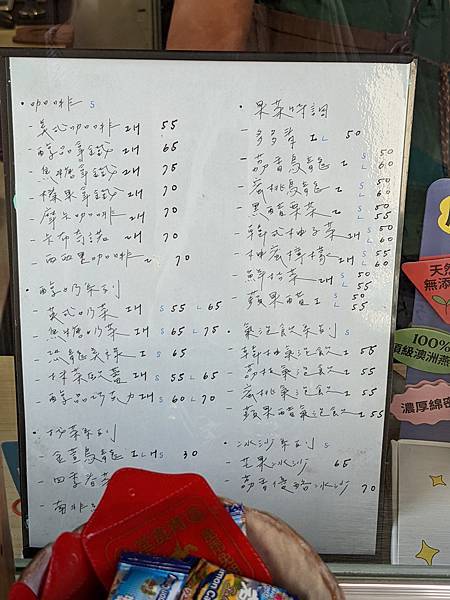 • 咖啡 S
- 美式咖啡 IH 55
- 醇品拿鐵 IH 65
- 焦糖拿鐵 IH 75
- 榛果拿鐵 IH 70
- 摩卡咖啡 IH 70
- 卡布奇諾 IH 70
- 西西里咖啡 I 70
• 醇奶系列
- 英式奶茶 IH S 55 L 65
- 焦糖奶茶 IH S 65 L 75
I S 65
- 抹茶歐蕾 IH S 55 L 65
- 醇品巧克力 IH S 60 L 70
• 杯茶系列
- 金萱烏龍 ILHS 30
- 四季春茶
- 南非
• 果茶特調
- 多多青 I L 50
- 荔香烏龍 I S 50 L 60
- 蜜桃烏龍 I S 50 L 60
- 黑醋栗茶 I S 50 L 55
- 韓式柚子茶 IH S 50 L 55
- 柚蜜檸檬 IH S 55 L 60
- 鮮桔茶 IH S 50 L 55
- 蘋果醋 I S 50 L 55
• 氣泡飲系列 S
- 韓柚氣泡飲 I 55
- 荔枝氣泡飲 I 55
- 蜜桃氣泡飲 I 55
- 蘋果醋氣泡飲 I 55
• 冰沙系列 S
- 芒果冰沙 65
- 荔香優酪冰沙 70
天然
無添
100%
頂級澳洲燕
濃厚綿密